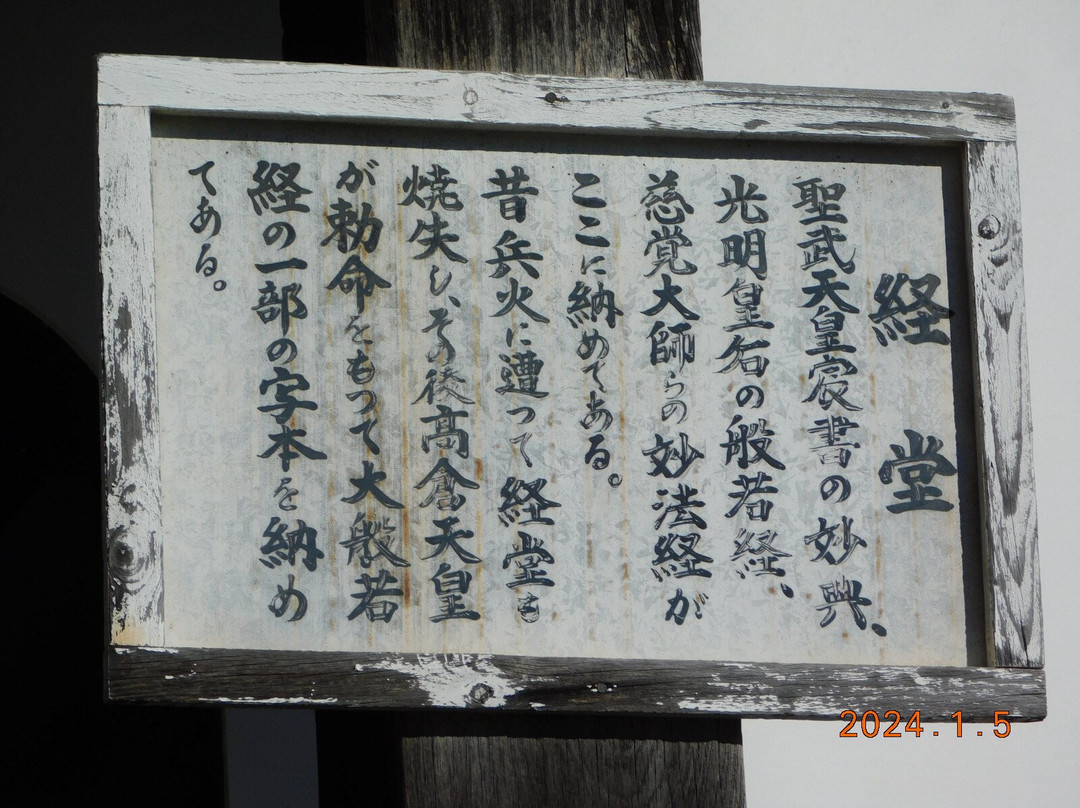 経堂
聖武天皇宸書の妙典、
光明皇后の般若経、
慈覚大師らの妙法経が
ここに納めてある。
昔兵火に遭って経堂も
焼失し、その後高倉天皇
が勅命をもって大般若
経の一部の写本を納め
てある。
2024.1.5